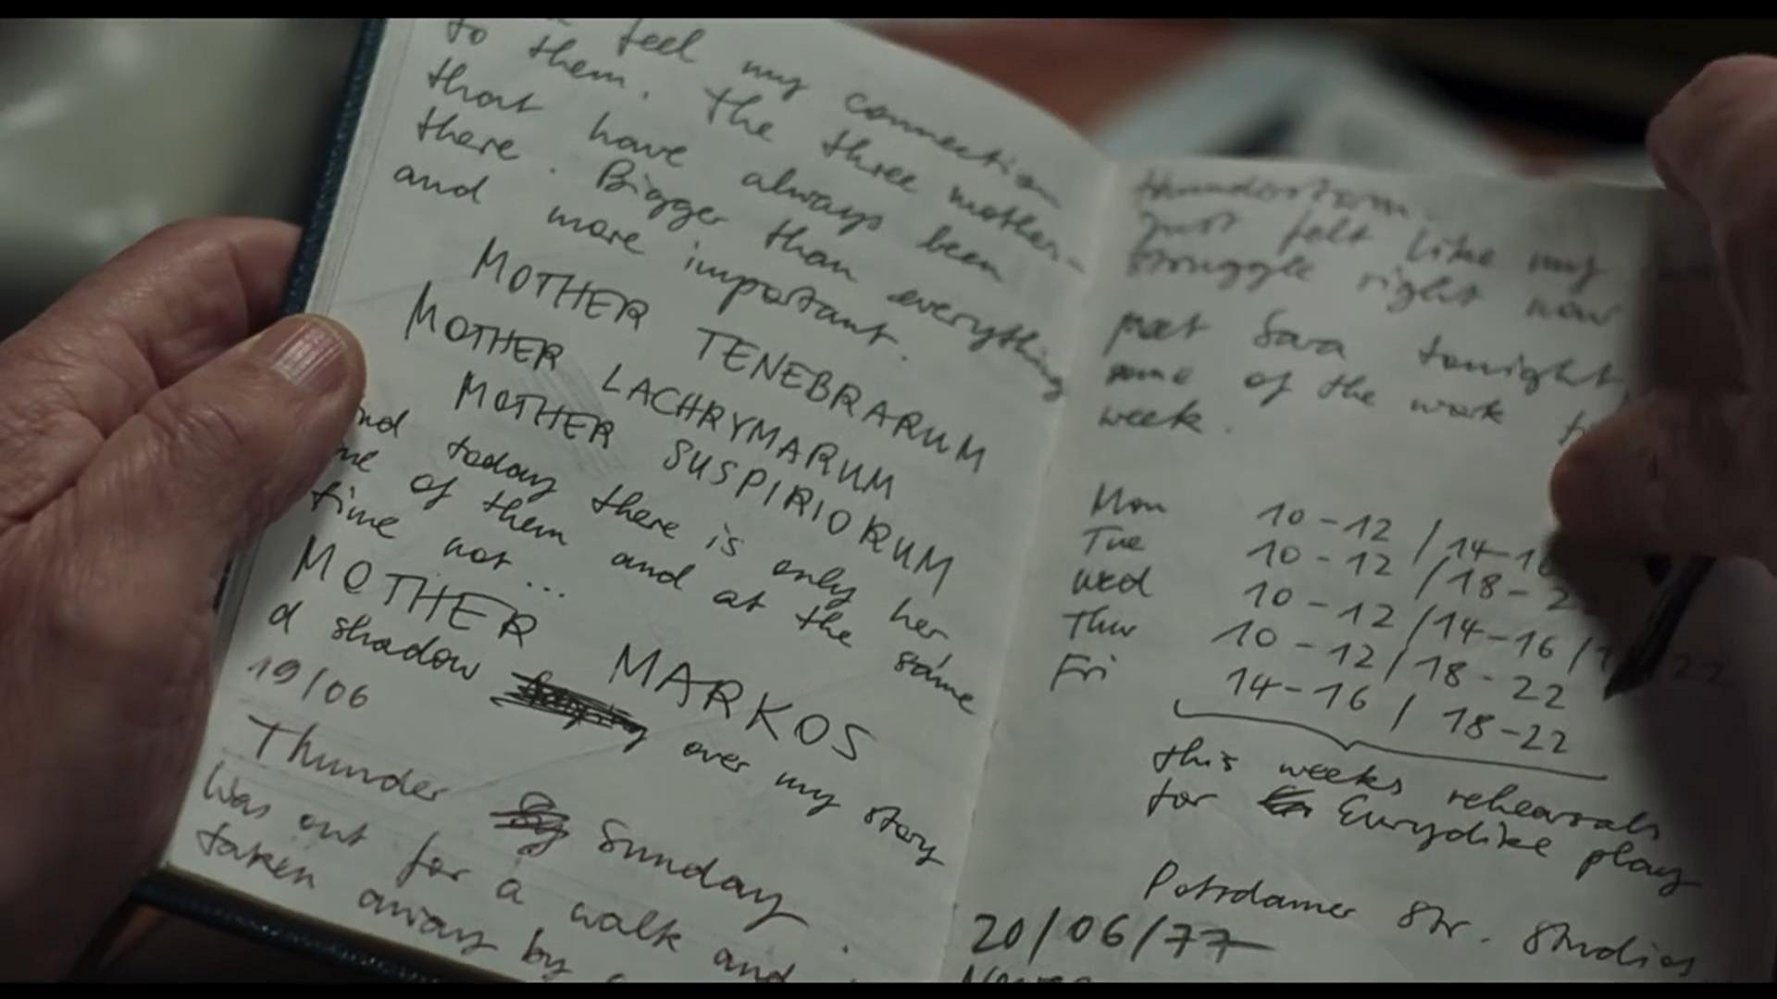 feel my connection
to them. The three mothers
that have always been
there. Bigger than everything
and more important.
MOTHER TENEBRARUM
MOTHER LACHRYMARUM
MOTHER SUSPIRIORUM
and today there is only her
of them and at the same
time not...
MOTHER MARKOS
a shadow over my story
19/06
Thunder Sunday.
Was out for a walk and
taken away by
thunderstorm.
Just felt like my
struggle right now
meet Sara tonight,
some of the work
week.
Mon 10-12 / 14-16
Tue 10-12 / 18-2
Wed 10-12 / 14-16 /
Thur 10-12 / 18-22
Fri 14-16 / 18-22
this weeks rehearsals
for Eurydike play
Potsdamer Str. Studios
20/06/77